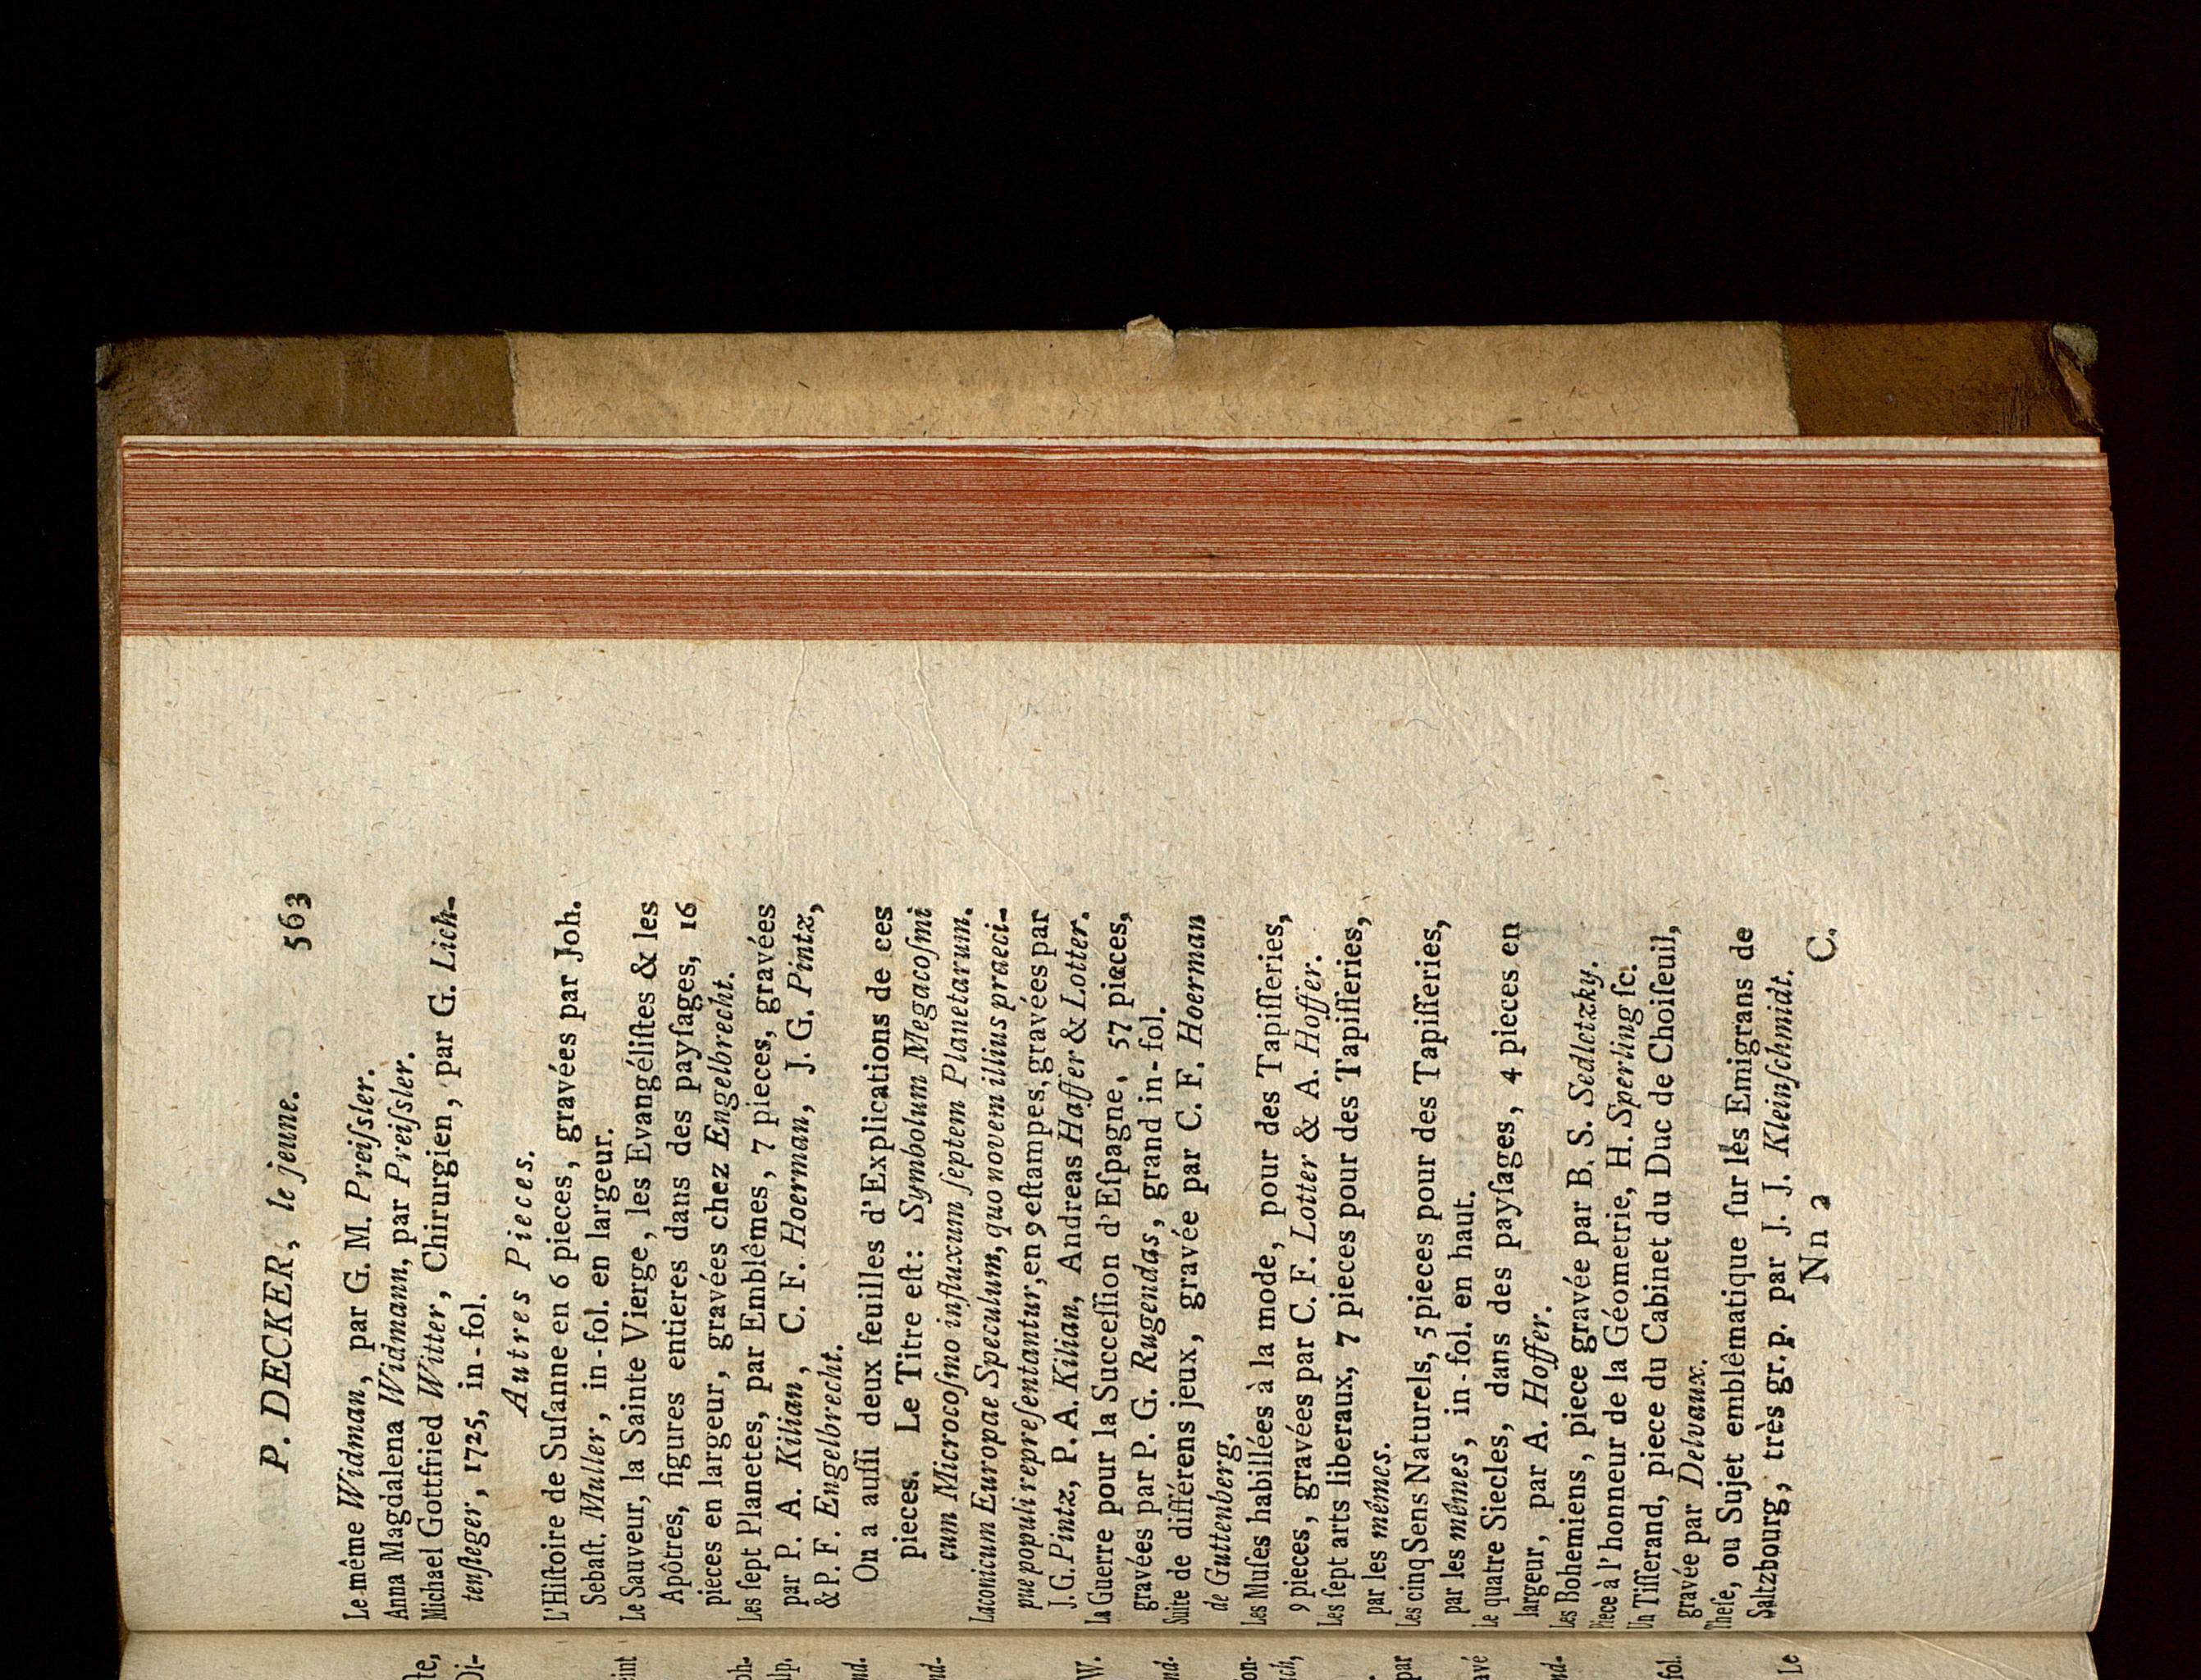 P. DECKER, le jeune. 563
Le même Widman, par G. M. Preiſsler.
Anna Magdalena Widmann, par Preiſsler.
Michael Gottfried Witter, Chirurgien, par G. Lich-
tenſteger, 1725, in-fol.
Autres Pieces.
L'Hiſtoire de Suſanne en 6 pieces, gravées par Joh.
Sebaſt. Muller, in-fol. en largeur.
Le Sauveur, la Sainte Vierge, les Evangéliſtes & les
Apôtres, figures entieres dans des payſages, 16
pieces en largeur, gravées chez Engelbrecht.
Les ſept Planetes, par Emblêmes, 7 pieces, gravées
par P. A. Kilian, C. F. Hoerman, J. G. Pintz,
& P. F. Engelbrecht.
On a auſſi deux feuilles d'Explications de ces
pieces. Le Titre eſt: Symbolum Megacoſmi
cum Microcoſmo influxum ſeptem Planetarum.
Laconicum Europae Speculum, quo novem illius praeci-
pue populi repreſentantur, en 9 eſtampes, gravées par
J. G. Pintz, P. A. Kilian, Andreas Haffer & Lotter.
La Guerre pour la Succeſſion d'Eſpagne, 57 pieces,
gravées par P. G. Rugendas, grand in-fol.
Suite de différens jeux, gravée par C. F. Hoerman
de Guttenberg.
Les Muſes habillées à la mode, pour des Tapiſſeries,
9 pieces, gravées par C. F. Lotter & A. Hoffer.
Les ſept arts liberaux, 7 pieces pour des Tapiſſeries,
par les mêmes.
Les cinq Sens Naturels, 5 pieces pour des Tapiſſeries,
par les mêmes, in-fol. en haut.
Le quatre Siecles, dans des payſages, 4 pieces en
largeur, par A. Hoffer.
Les Bohemiens, piece gravée par B. S. Sedletzky.
Piece à l'honneur de la Géometrie, H. Sperling ſc.
Un Tiſſerand, piece du Cabinet du Duc de Choiſeuil,
gravée par Delvaux.
Theſe, ou Sujet emblêmatique ſur les Emigrans de
Saltzbourg, très gr. p. par J. J. Kleinſchmidt.
Nn 2 C.